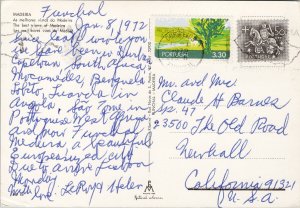 MADEIRA
As melhores vistas da Madeira
The best views of Madeira
Les meilleures vues de Madère
Funchal
Jan. 8, 1972
Since I last wrote you
Capetown South Africa
Mocamedes, Benguela
Lobito, Luanda in
Angola, Sao Tome in
Portuguese West Africa
and now Funchal
Madeira, a beautiful
European city
Due to arrive Lisbon
Monday
Love, LeRoy & Helen
PORTUGAL
3.30
Mr. and Mrs.
Claude H. Barnes
SN: 47
23500 The Old Road
Newhall
California 91321
U.S.A.